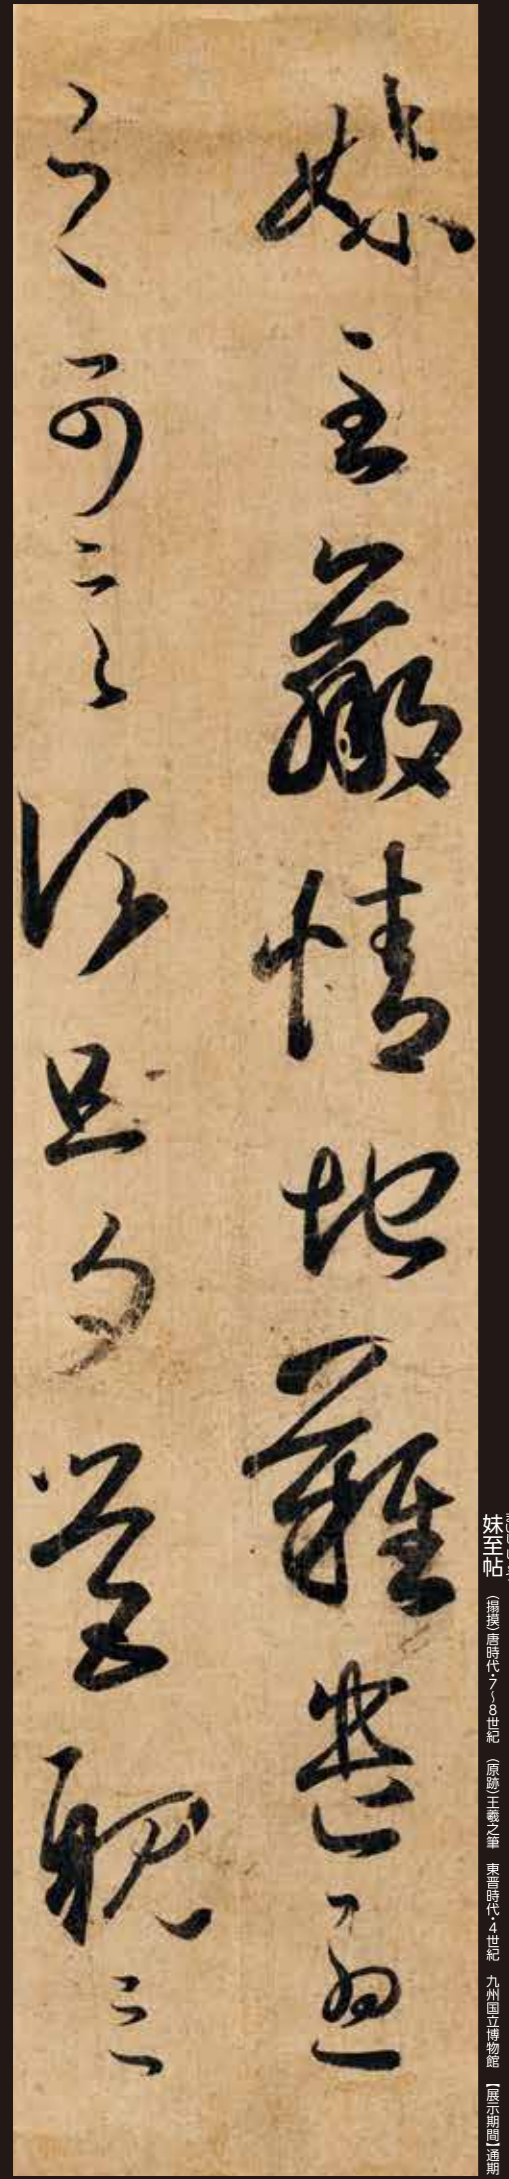 妹至羸情地難遣憂
之可言須旦夕營視之
妹至帖 （搨摸）唐時代・7〜8世紀 （原跡）王羲之筆 東晋時代・4世紀 九州国立博物館 【展示期間】通期